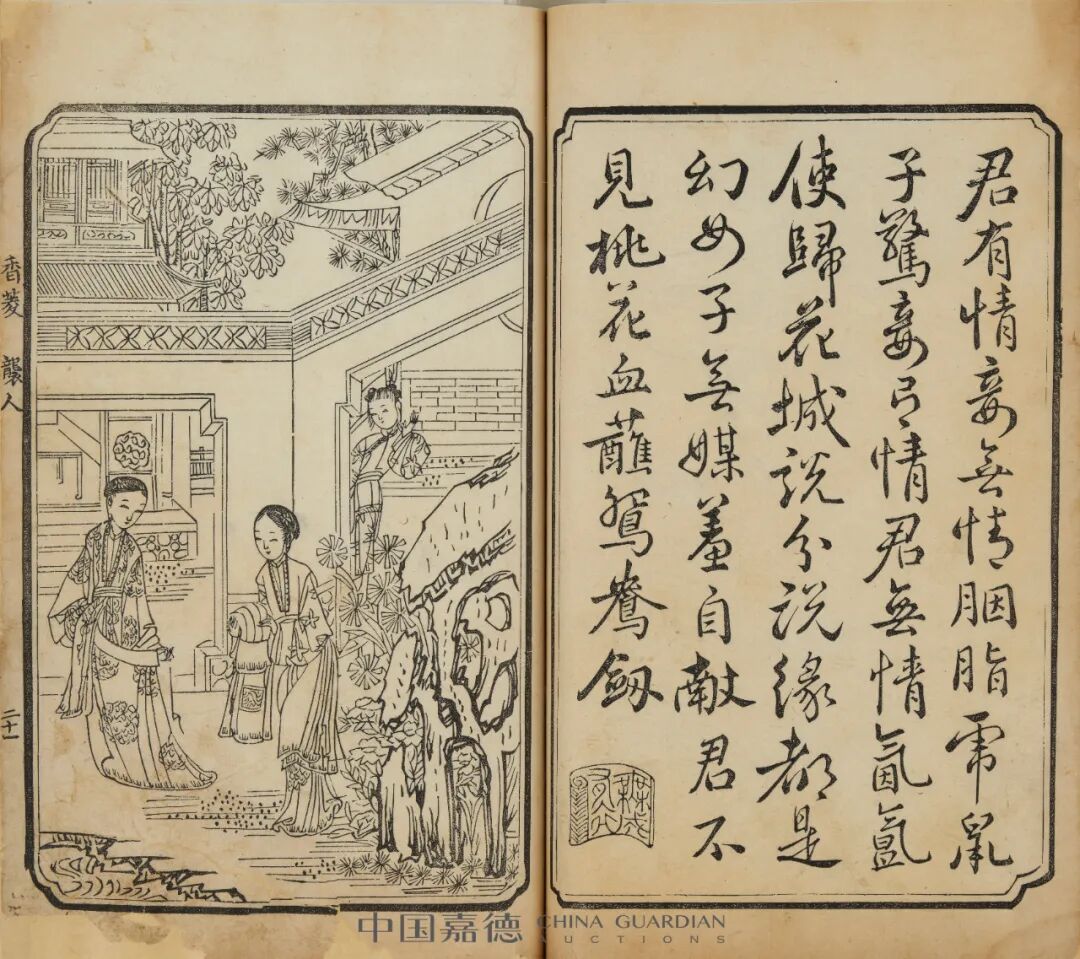 君有情妾無情胭脂虎鼠
子驚妾有情君無情氤氳
使歸花城說分說緣都是
幻女子無媒羞自獻君不
見桃花血蘸鴛鴦劔
香菱 襲人 二十一
中国嘉德 CHINA GUARDIAN
AUCTIONS